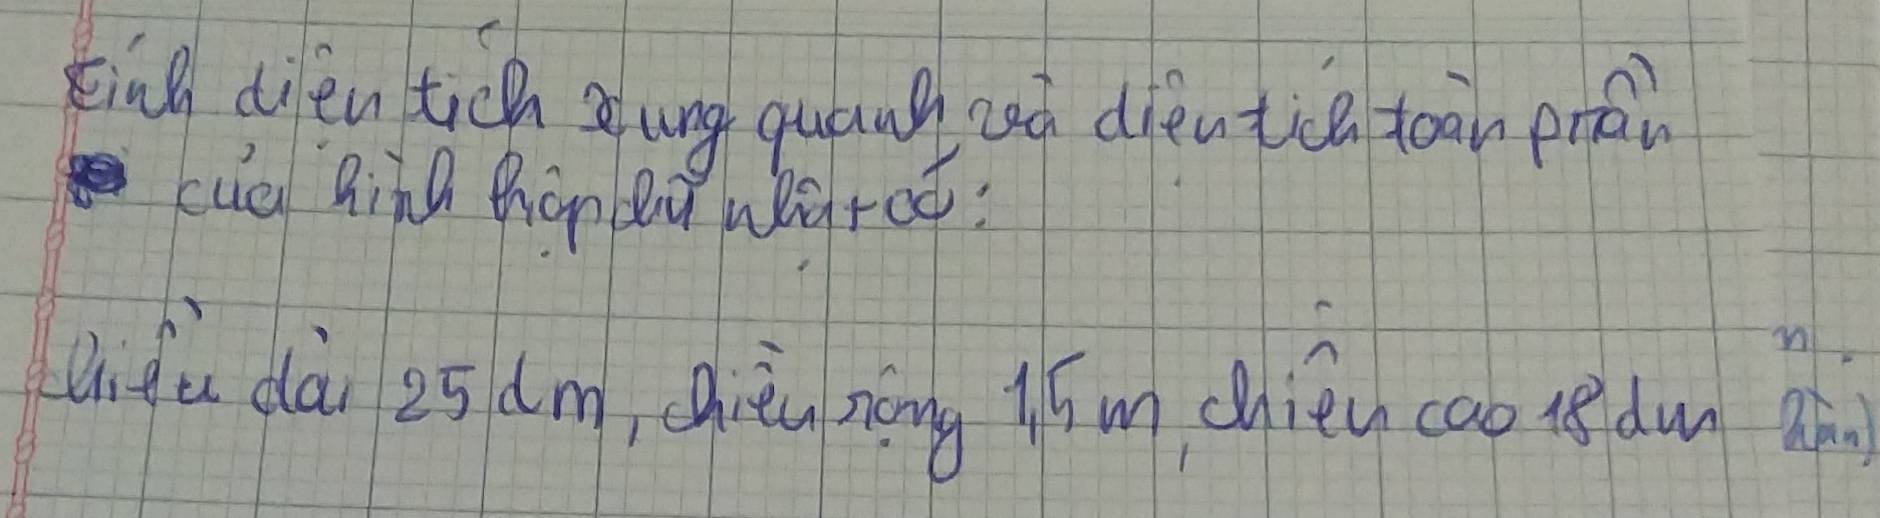 tính diện tích xung quanh và diện tích toàn phần
của hình hộp chữ nhật có:
Chiều dài 25 dm, chiều rộng 1,5 m, chiều cao 18 dm